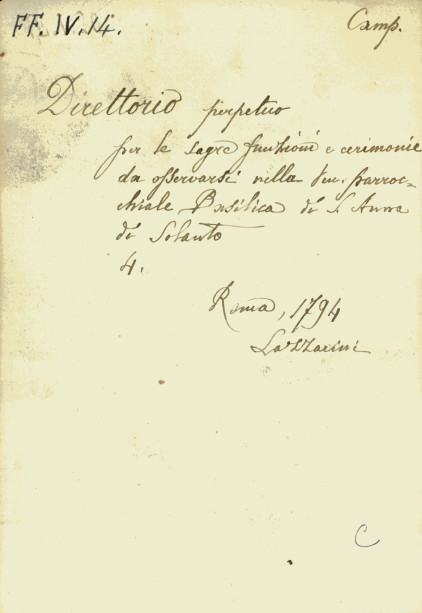 FF. IV. 14.
Camp.
Direttorio perpetuo
per le sagre funzioni e cerimonie
da osservarsi nella Ven. parroc-
chiale Basilica di S. Anna
di Solanto
4.
Roma, 1794
Lazzarini
C